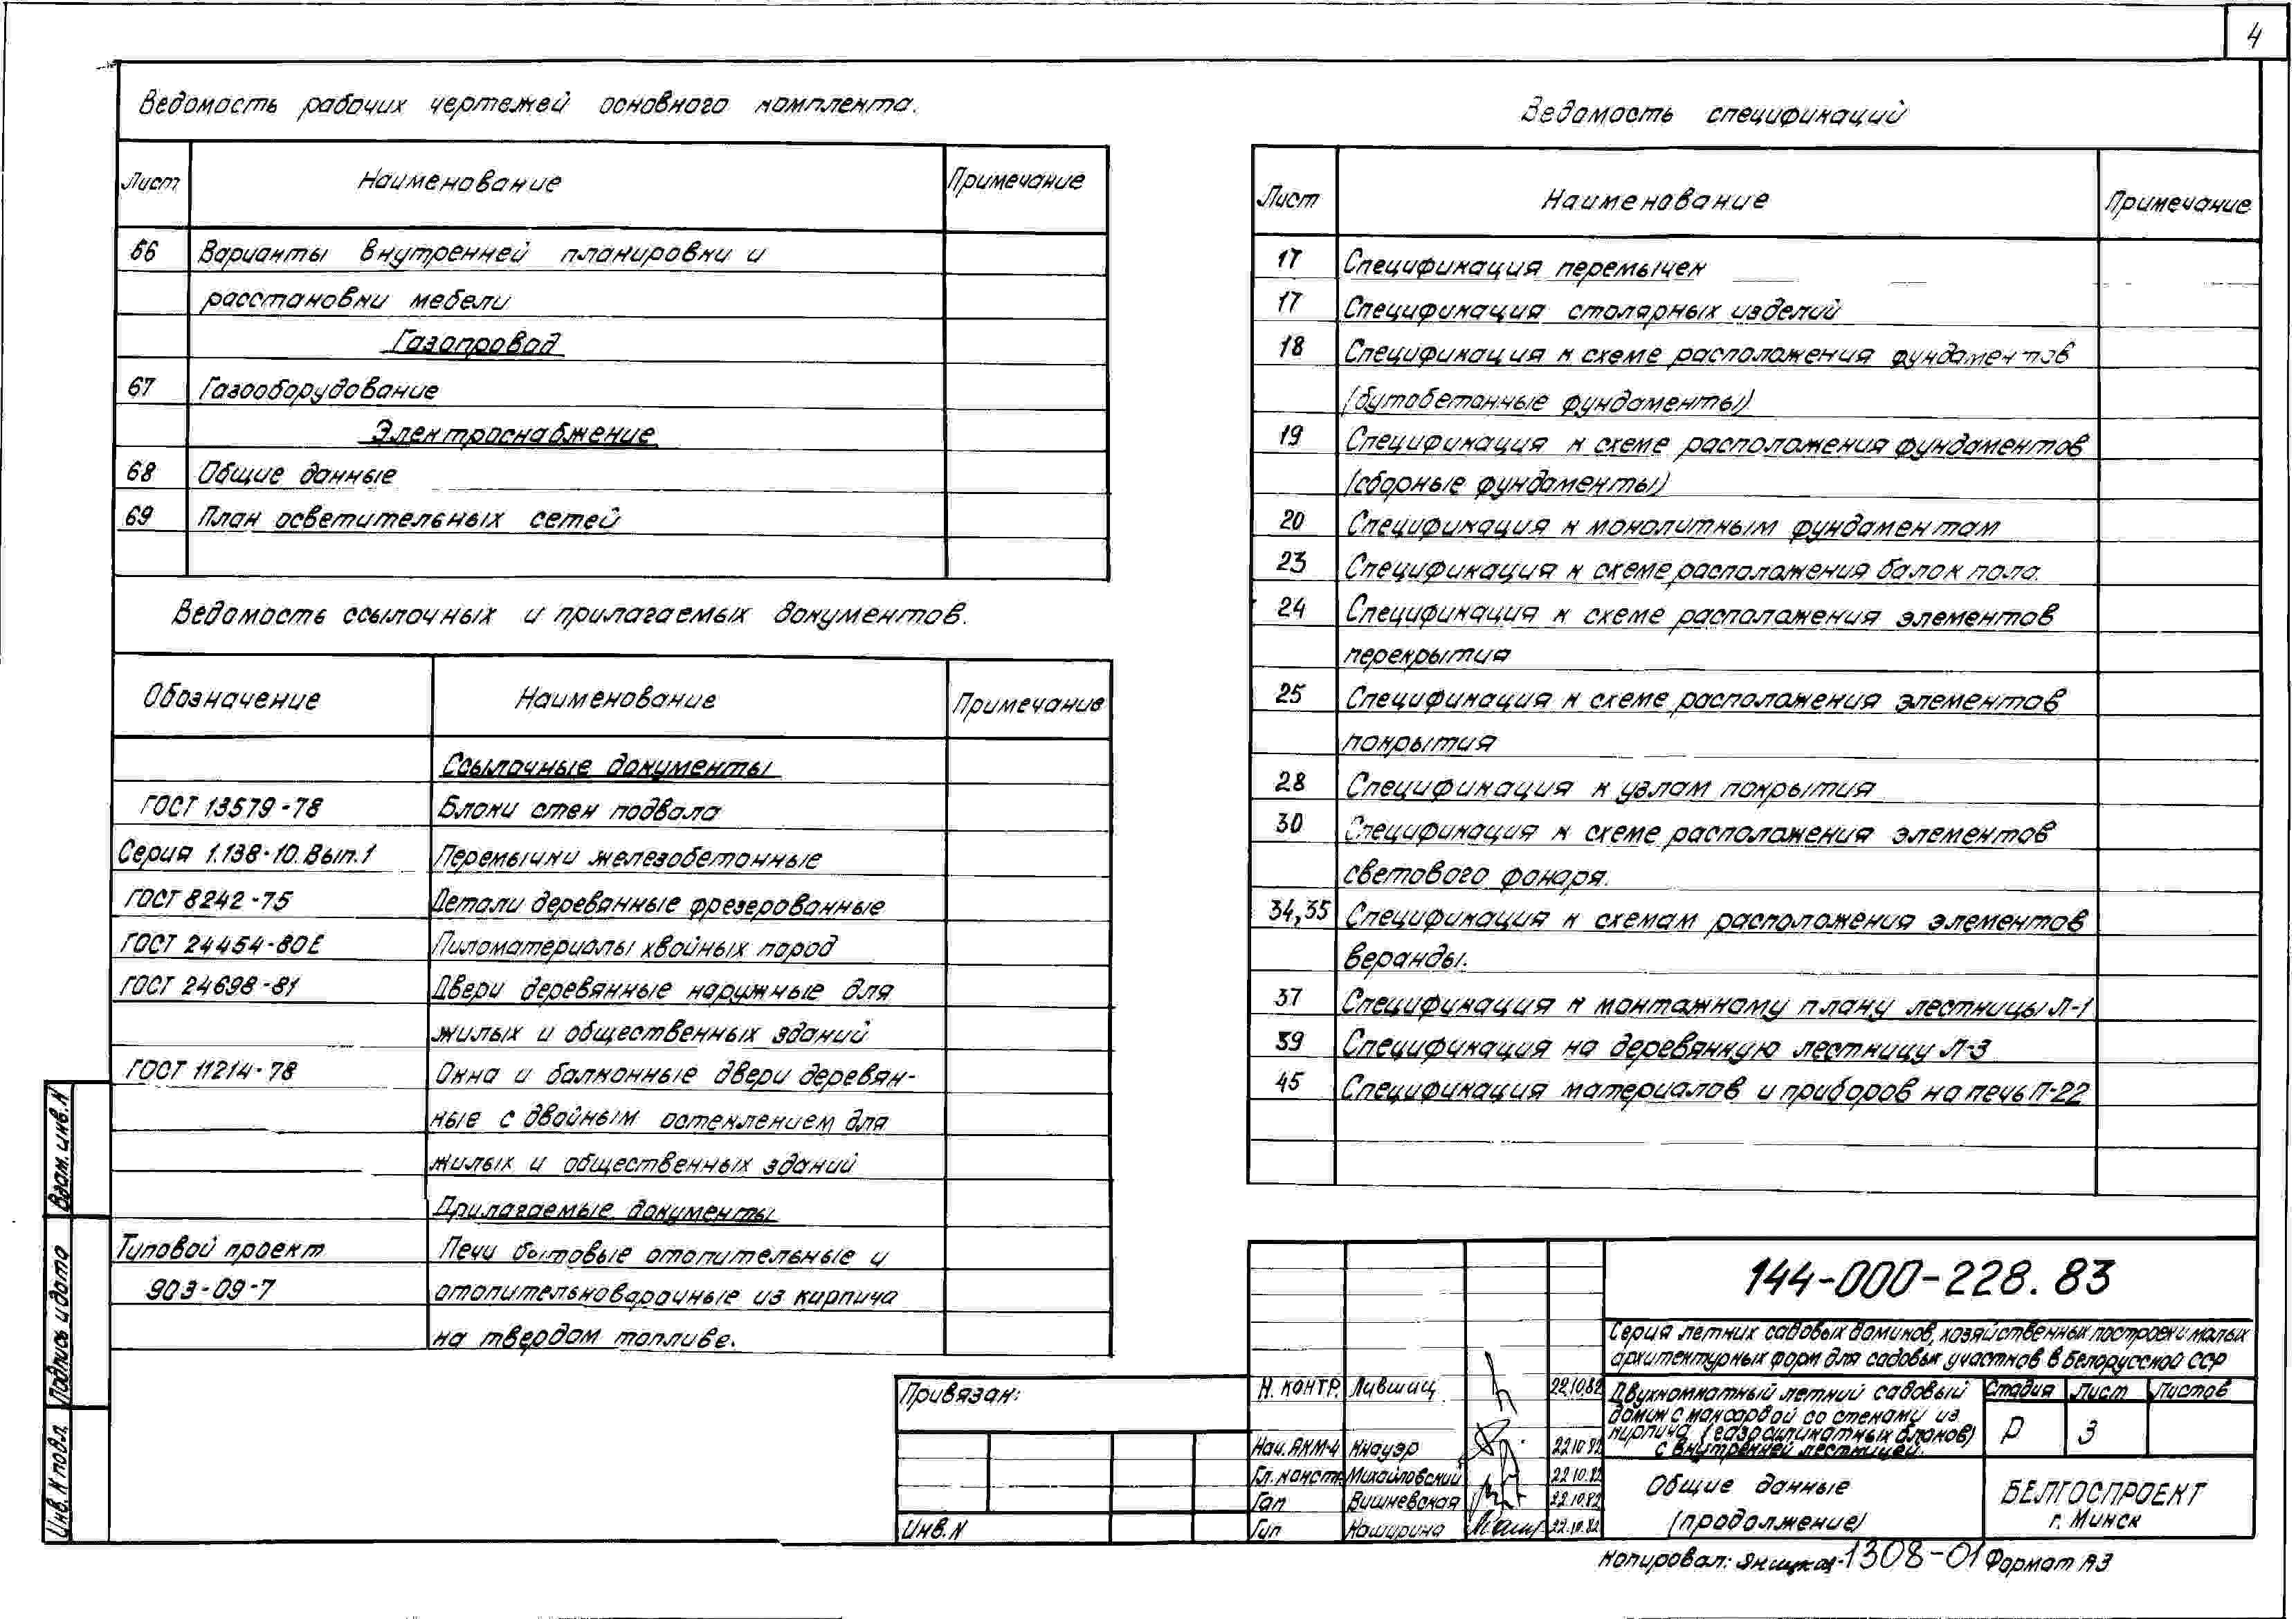 4
Ведомость рабочих чертежей основного комплекта.
Лист Наименование Примечание
66 Варианты внутренней планировки и
расстановки мебели
Газопровод
67 Газооборудование
Электроснабжение
68 Общие данные
69 План осветительных сетей
Ведомость ссылочных и прилагаемых документов.
Обозначение Наименование Примечание
Ссылочные документы
ГОСТ 13579-78 Блоки стен подвала
Серия 1.138-10. Вып.1 Перемычки железобетонные
ГОСТ 8242-75 Детали деревянные фрезерованные
ГОСТ 24454-80Е Пиломатериалы хвойных пород
ГОСТ 24698-81 Двери деревянные наружные для
жилых и общественных зданий
ГОСТ 11214-78 Окна и балконные двери деревян-
ные с двойным остеклением для
жилых и общественных зданий
Прилагаемые документы
Типовой проект Печи бытовые отопительные и
903-09-7 отопительноварочные из кирпича
на твердом топливе.
Ведомость спецификаций
Лист Наименование Примечание
17 Спецификация перемычек
17 Спецификация столярных изделий
18 Спецификация к схеме расположения фундаментов
(бутобетонные фундаменты)
19 Спецификация к схеме расположения фундаментов
(сборные фундаменты)
20 Спецификация к монолитным фундаментам
23 Спецификация к схеме расположения балок пола.
24 Спецификация к схеме расположения элементов
перекрытия
25 Спецификация к схеме расположения элементов
покрытия
28 Спецификация к узлам покрытия
30 Спецификация к схеме расположения элементов
светового фонаря.
34,35 Спецификация к схемам расположения элементов
веранды.
37 Спецификация к монтажному плану лестницы Л-1
39 Спецификация на деревянную лестницу Л-3
45 Спецификация материалов и приборов на печь П-22
Взам. инв. N
Подпись и дата
Инв. N подл.
Привязан:
Инв. N
144-000-228.83
Серия летних садовых домиков, хозяйственных построек и малых
архитектурных форм для садовых участков в Белорусской ССР
Н. КОНТР. Лившиц 22.10.82
Нач. АКМ-4 Кнауэр 22.10.82
Гл. констр. Михайловский 22.10.82
Гап Вишневская 22.10.82
Гип Кашурина 22.10.82
Двухкомнатный летний садовый
домик с мансардой со стенами из
кирпича (газосиликатных блоков)
с внутренней лестницей.
Стадия Лист Листов
Р 3
Общие данные
(продолжение)
БЕЛГОСПРОЕКТ
г. Минск
Копировал: Яницкая 1308-01 Формат А3